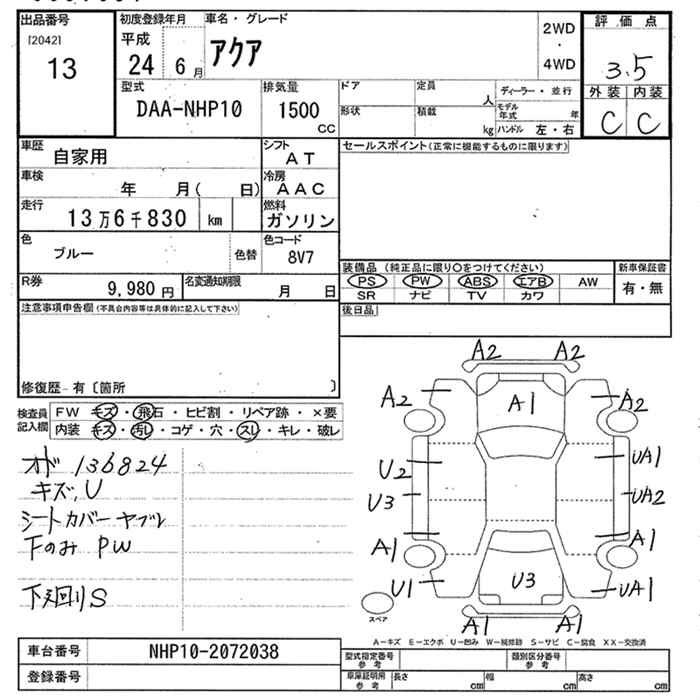 出品番号
[2042]
13
初度登録年月
平成
24 6 月
車名・グレード
アクア
2WD
・
4WD
評価点
3.5
外装 内装
C C
型式
DAA-NHP10
排気量
1500
cc
ドア
形状
定員
人
積載
kg
ディーラー・並行
モデル年式 年
ハンドル 左・右
車歴
自家用
シフト
AT
車検
年 月( 日)
冷房
AAC
走行
13万6千830 km
燃料
ガソリン
色
ブルー
色替
色コード
8V7
R券
9,980 円
名変通知期限
月 日
セールスポイント(正常に機能するものに限ります)
装備品(純正品に限り○をつけてください)
PS PW ABS エアB AW
SR ナビ TV カワ
新車保証書
有・無
後日品
注意事項申告欄(不具合内容等は具体的に記入して下さい)
修復歴-有〔箇所 〕
検査員記入欄
FW キズ・飛石・ヒビ割・リペア跡・×要
内装 キズ・汚レ・コゲ・穴・スレ・キレ・破レ
オド 136824
キズ,U
シートカバーヤブレ
下のみ PW
下廻りS
A2 A2
A2 A1 A2
U2 UA1
U3 UA2
A1 A1
U1 U3 UA1
A1 A1
スペア
A-キズ E-エクボ U-凹み W-補修跡 S-サビ C-腐食 XX-交換済
車台番号
NHP10-2072038
登録番号
型式指定番号
参考
類別区分番号
参考
車庫証明用
参考
長さ cm
幅 cm
高さ cm